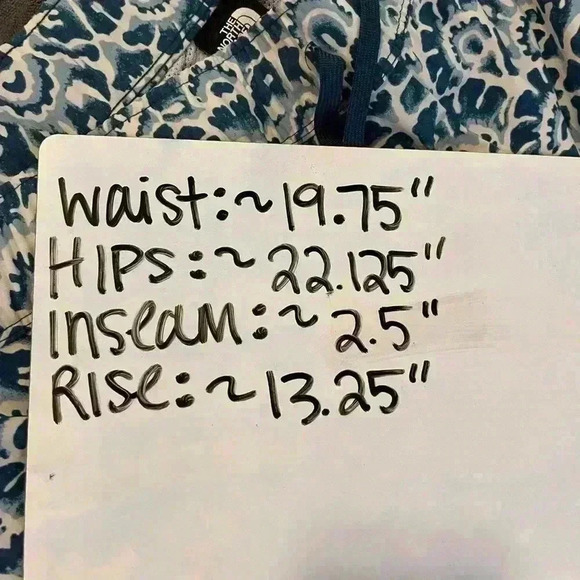 THE
NORTH
waist:~19.75"
HIPS:~22.125"
Inseam:~2.5"
RISe:~13.25"